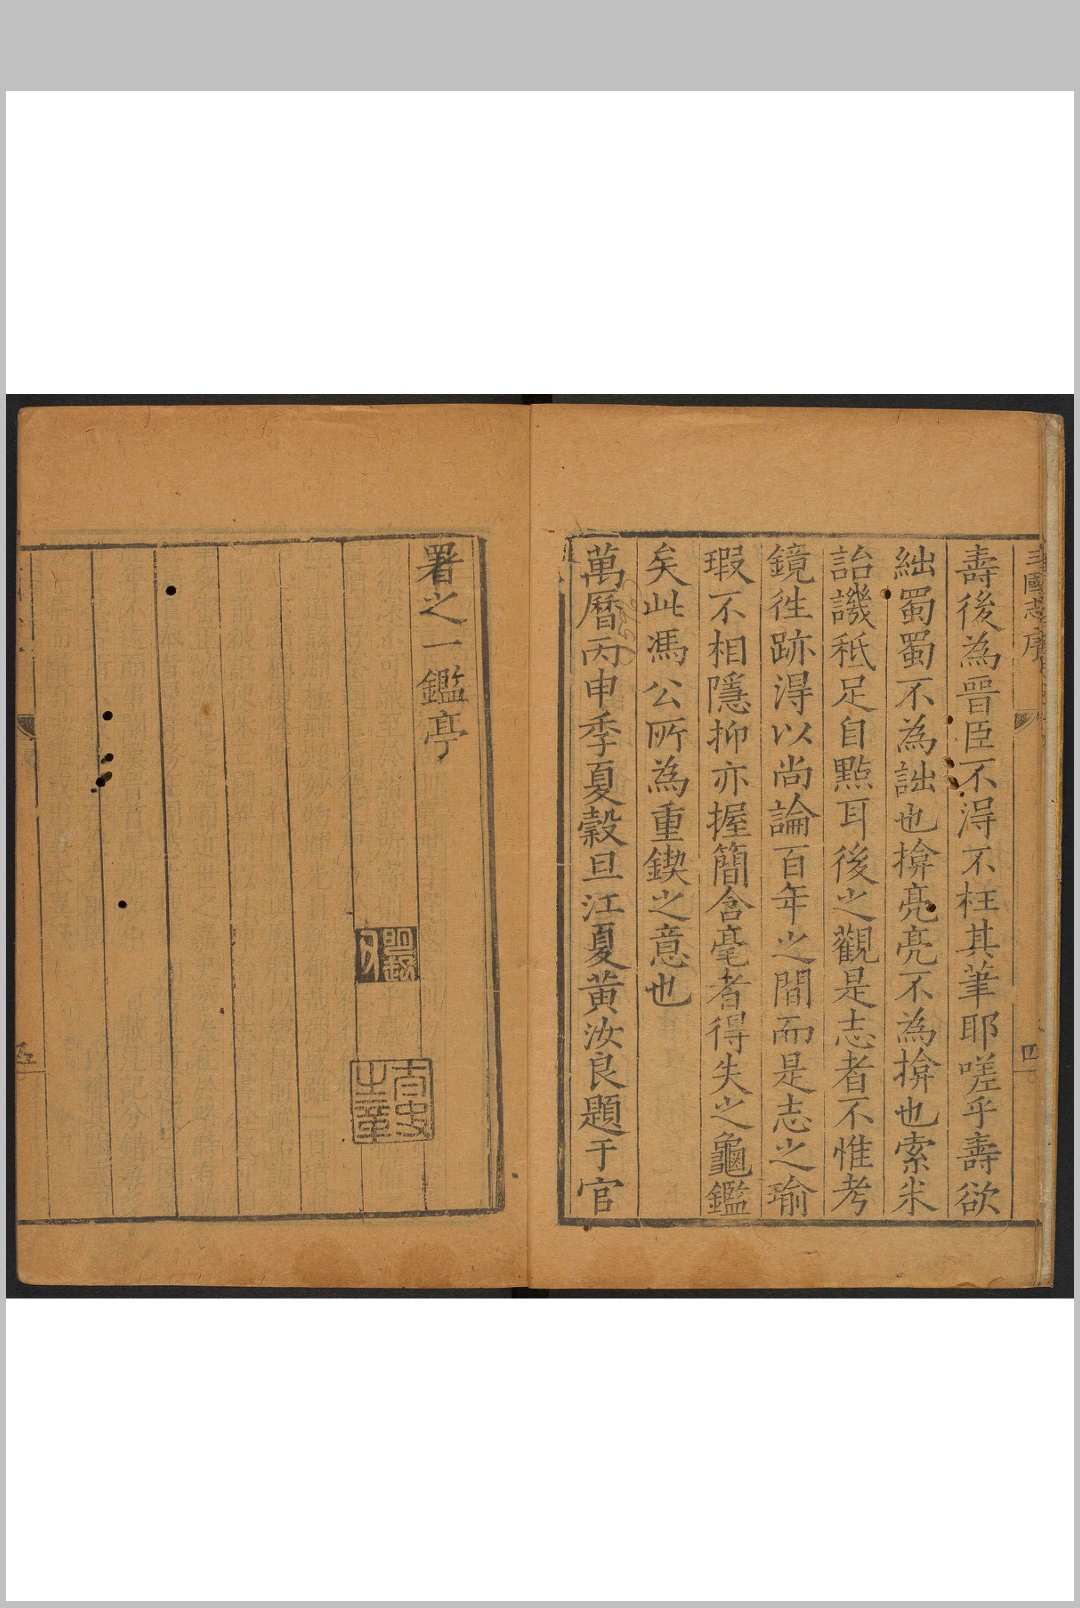 三國志序
四
壽後為晋臣不淂不枉其筆耶嗟乎壽欲
絀蜀蜀不為詘也揜亮亮不為揜也索米
詒譏秪足自㸃耳後之觀是志者不惟考
鏡徃跡淂以尚論百年之間而是志之瑜
瑕不相隱抑亦握簡含毫者得失之龜鑑
矣此馮公所為重鍥之意也
萬曆丙申季夏穀旦江夏黄汝良題于官
署之一鑑亭